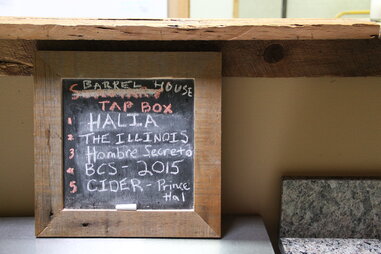 BARREL HOUSE
TAP BOX
1 HALIA
2 THE ILLINOIS
3 Hombre Secreto
4 BCS - 2015
5 CIDER - Prince
Hal